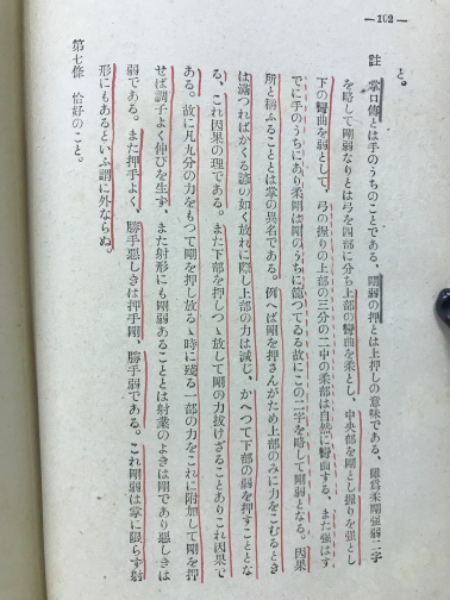 —102—
と。
註 掌口傳とは手のうちのことである、剛弱の押とは上押しの意味である、雖爲柔剛強弱二字
を略して剛弱なりとは弓を四部に分ち上部の彎曲を柔とし、中央部を剛とし握りを強とし
下の彎曲を弱として、弓の握りの上部の三分の二中の柔部は自然に彎曲する、また強はす
でに手のうちにあり柔剛は剛のうちに籠つてゐる故にこの二字を略して剛弱となる。因果
所と稱ふることとは掌の異名である。例へば剛を押さんがため上部のみに力をこむるとき
は滿つればかくる諺の如く放れに際し上部の力は減じ、かへつて下部の弱を押すこととな
る、これ因果の理である。また下部を押しつゝ放して剛の力拔けざることありこれ因果で
ある。故に凡九分の力をもつて剛を押し放るゝ時に殘る一部の力をこれに附加して剛を押
せば調子よく伸びを生ず、また射形にも剛弱あることとは射業のよきは剛であり惡しきは
弱である。また押手よく、勝手惡しきは押手剛、勝手弱である。これ剛弱は掌に限らず射
形にもあるといふ謂に外ならぬ。
第七條 恰好のこと。